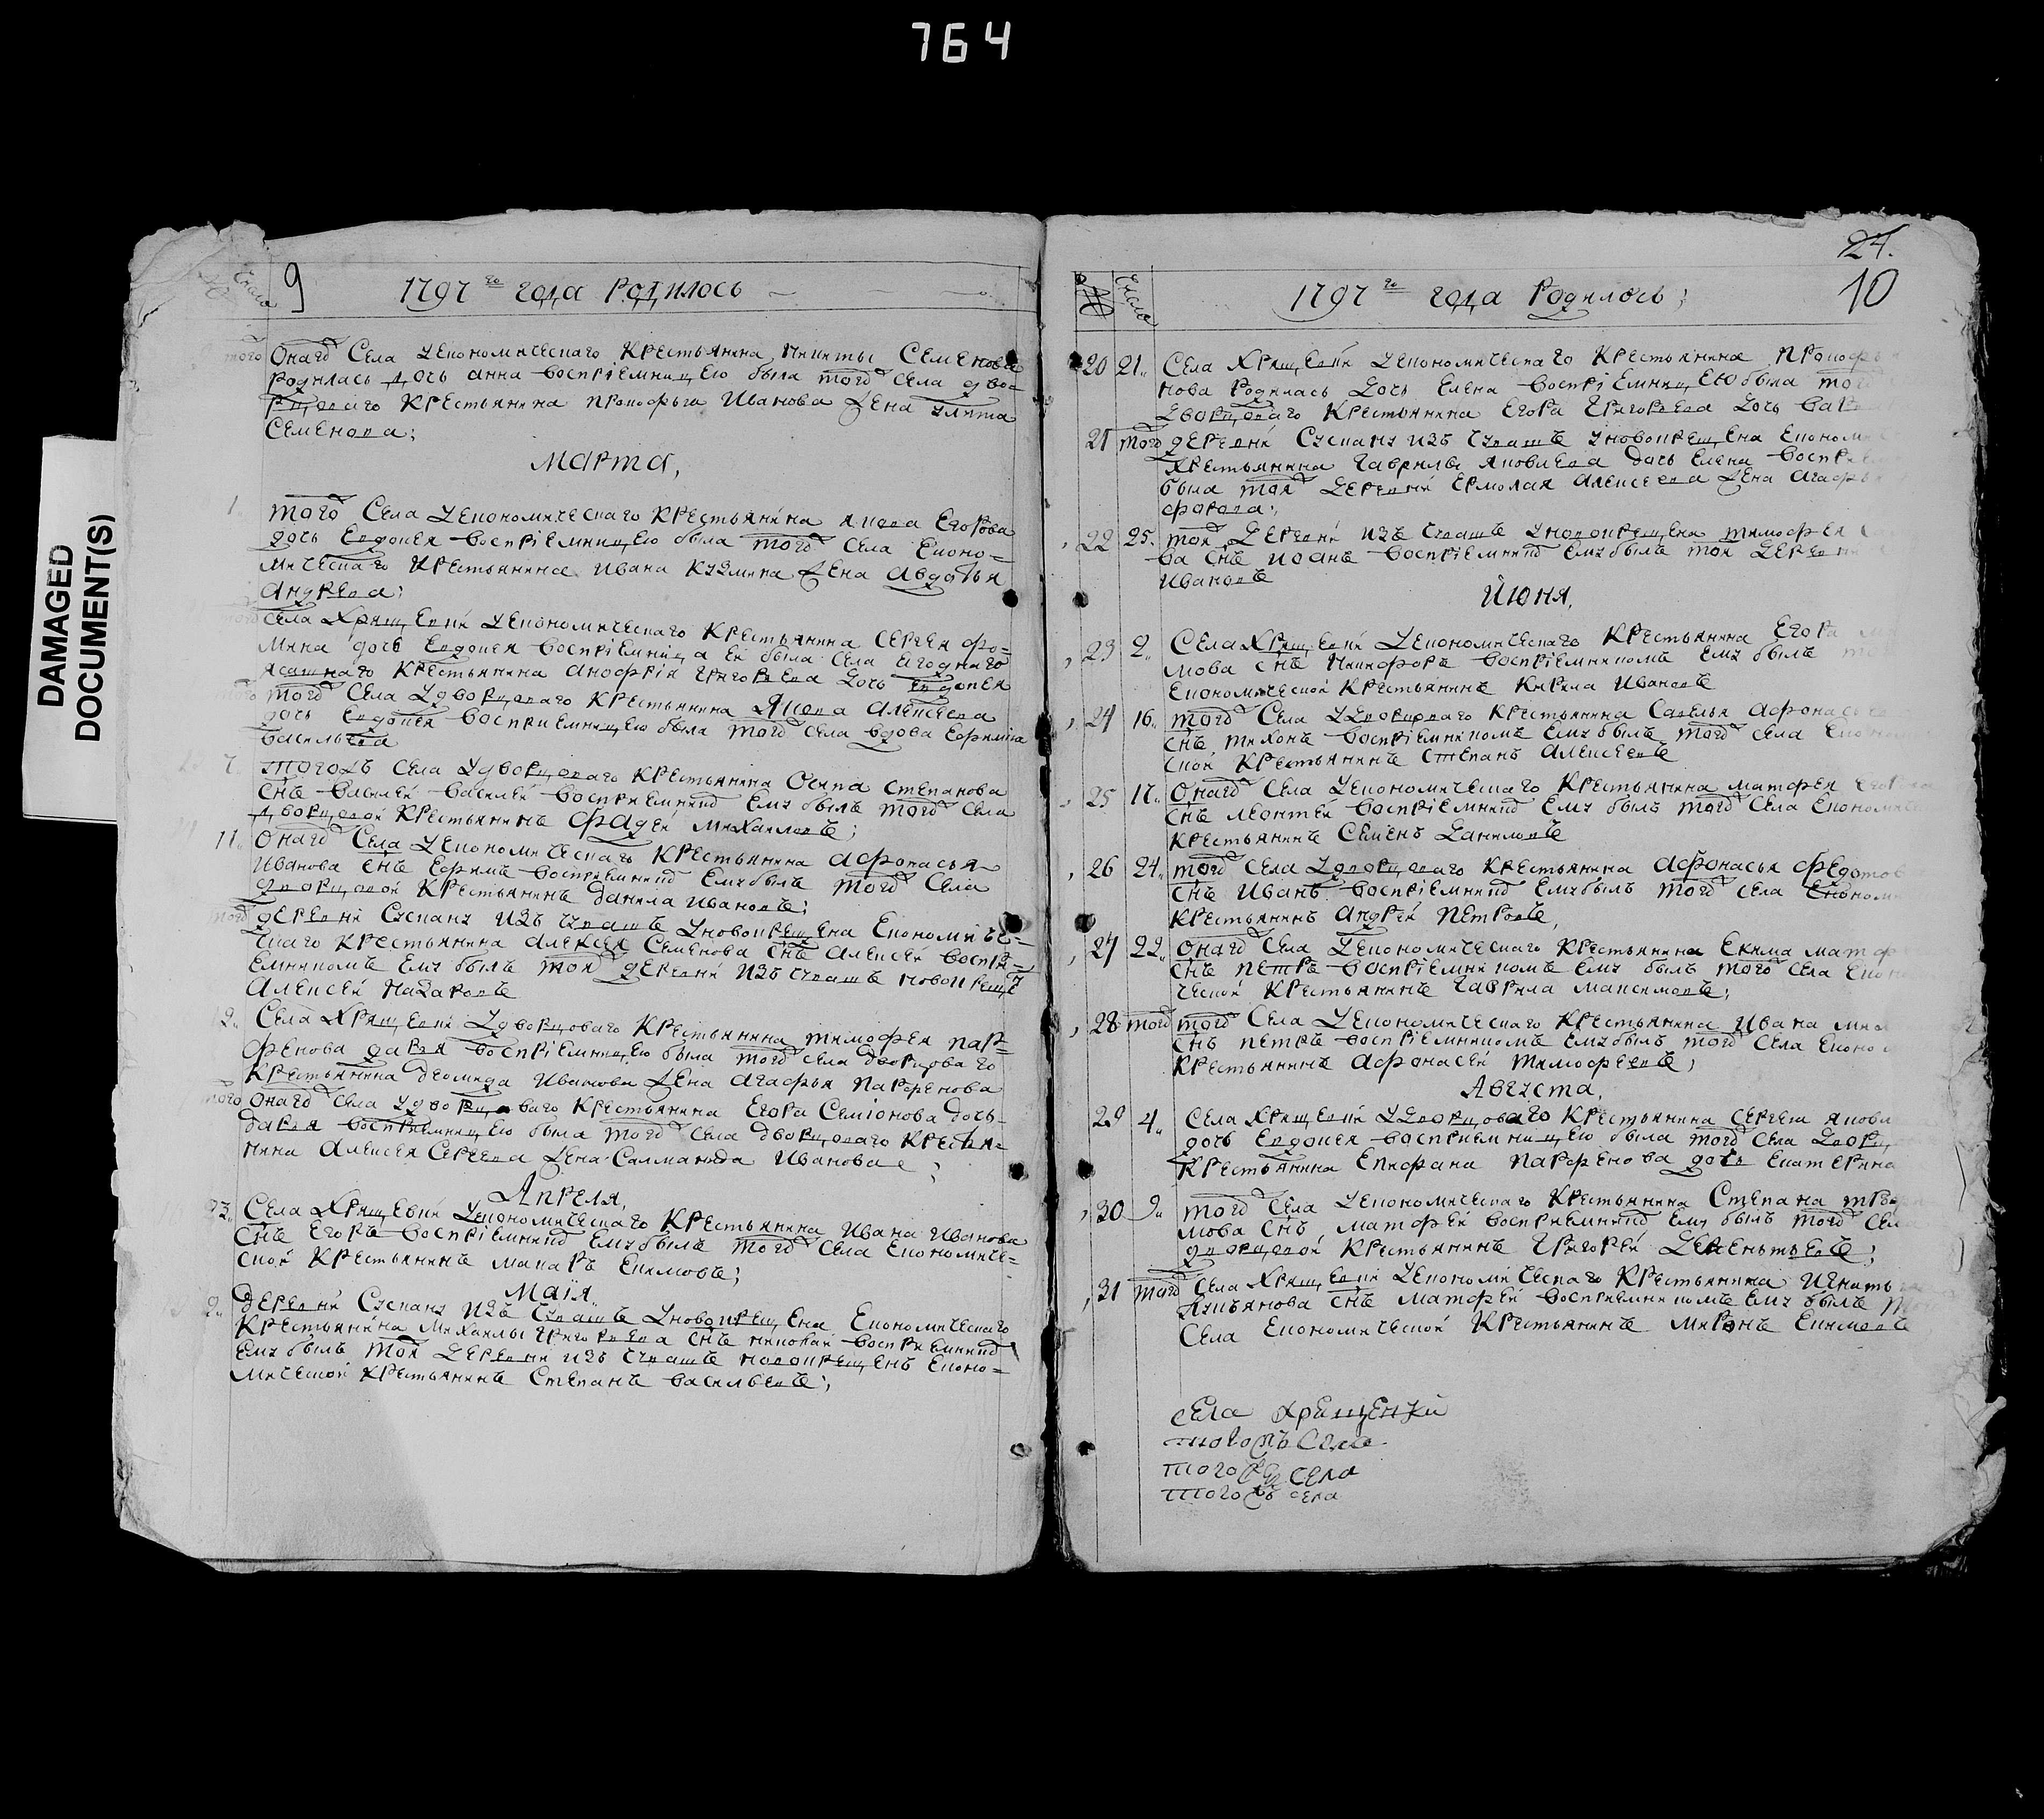 764
DAMAGED
DOCUMENT(S)
Числа
9
1797 го года Родилось
того
Онагож Села Уекономическаго Крестьянина Никиты Семенова
родилась дочь анна воспріемницею была тогож села двор
цоваго Крестьянина прокофья Иванова жена улита
Семенова;
Марта,
1
того Села Уекономическаго Крестьянина якова Егорова
дочь Евдокея воспріемницею была тогож села Еконо=
мическаго Крестьянина Ивана Кузмина жена Авдотья
Андреева;
Села Хрящевки Уекономическаго Крестьянина Сергея фо=
мина дочь Евдокея воспріемница Ей была Села Ягоднаго
ясашнаго Крестьянина Анофрія григорьева дочь Евдокея
тогож Села Удворцоваго Крестьянина Якова Алексеева
дочь Евдокея воспріемницею была тогож села вдова Ефимия
васильева
7.
тогожъ села Удворцоваго Крестьянина Осипа степанова
снъ василей воспріемник Ему былъ тогож Села
дворцовой Крестьянинъ фадей Михаиловъ;
11.
Онагож Села Уекономическаго Крестьянина Афонасья
Иванова снъ Ефимъ воспріемник Ему былъ тогож Села
дворцовой Крестьянинъ данила Ивановъ;
тогож
деревни Сускану изъ Чувашъ Уновокрещена Економиче=
скаго крестьянина Алексея Семенова снъ Алексей воспрі=
емникомъ Ему былъ той деревни изъ чувашъ новокрещен
Алексей Назаровъ
2.
Села Хрящевки Удворцоваго Крестьянина тимофея пар=
фенова дарья воспріемницею была тогож села дворцоваго
Крестьянина деомида Иванова жена Агафья парфенова
того
Онагож Села Удворцоваго Крестьянина Егора Семіонова дочь
дарья воспріемницею была тогож Села дворцоваго Крестья=
нина Алексея Сергеева жена Саламанида Иванова;
Апреля,
23.
Села Хрящевки Уекономическаго Крестьянина Ивана Иванова
Снъ Егоръ воспріемник Ему былъ тогож Села Економиче=
ской Крестьянинъ макаръ Екимовъ;
Маія
2.
деревни Сускану изъ Чувашъ Уновокрещена Економическаго
Крестьянина Михаилы григорьева снъ николай воспріемник
Ему былъ той деревни изъ чувашъ новокрещенъ Еконо=
мической крестьянинъ Степанъ васильевъ;
24.
10
№ Числа
1797 го года Родилось;
20 21. Села Хрящевки Уекономическаго Крестьянина прокофья
нова Родилась Дочь Елена воспріемницею была тогож
Дворцоваго Крестьянина Егора Григорьева Дочь вар
21 тогож деревни Сускану изъ Чувашъ уновокрещена Економ
Крестьянина гаврилы яковлева дочь Елена воспрі
была той Деревни Ермолая Алексеева жена Агафья
22 25. той Деревни изъ Чувашъ Уновокрещена тимофея
ва снъ Иоанъ воспріемник Ему былъ той Деревни
Ивановъ
Июня,
23 2. Села Хрящевки Уекономическаго Крестьянина Егора
мова снъ Никифоръ воспріемникомъ Ему былъ
Економической Крестьянинъ Кирила Ивановъ
24 16. тогож Села Удворцоваго Крестьянина Савелья Афонасье
снъ тихонъ воспріемникомъ Ему былъ тогож села Економ
ской Крестьянинъ Степанъ Алексеевъ
25 17. Онагож Села Уекономическаго Крестьянина матфея
снъ леонтей воспріемник Ему былъ тогож Села Економи
Крестьянинъ Семенъ Даниловъ
26 21. тогож Села Удворцоваго Крестьянина Афонасья федотов
снъ Иванъ воспріемник Ему былъ тогож села Економ
Крестьянинъ Андрей петровъ,
27 22. Онагож Села Уекономическаго Крестьянина Екима матф
снъ петръ воспріемникомъ Ему былъ того Села Екон
ческой Крестьянинъ гаврила максимовъ;
28 тогож тогож Села Уекономическаго Крестьянина Ивана
снъ петръ воспріемникомъ Ему былъ тогож Села Еконо
Крестьянинъ Афонасей тимофеевъ;
Августа,
29 4. Села Хрящевки Удворцоваго Крестьянина Сергея яковл
дочь Евдокея воспріемницею была тогож Села Двор
Крестьянина Епифана парфенова дочь Екатерина
30 9. тогож Села Уекономическаго Крестьянина Степана
мова снъ матфей воспріемник Ему былъ тогож Сел
дворцовой Крестьянинъ Григорей Дементьевъ;
31 тогож Села Хрящевки Уекономическаго Крестьянина Игнать
лукьянова снъ матфей воспріемникомъ Ему былъ
Села Економической Крестьянинъ Миронъ Екимовъ
села хрещенки
тогожъ Села
того же села
тогожъ села